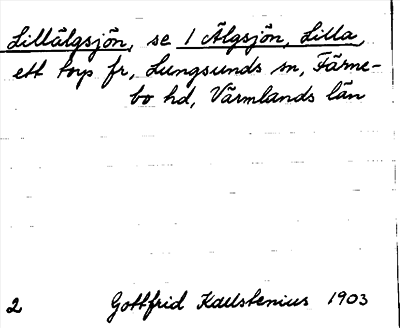 Lillälgsjön, se 1 Älgsjön, Lilla,
ett torp fr, Lungsunds sn, Färne-
bo hd, Värmlands län
2 Gottfrid Kallstenius 1903